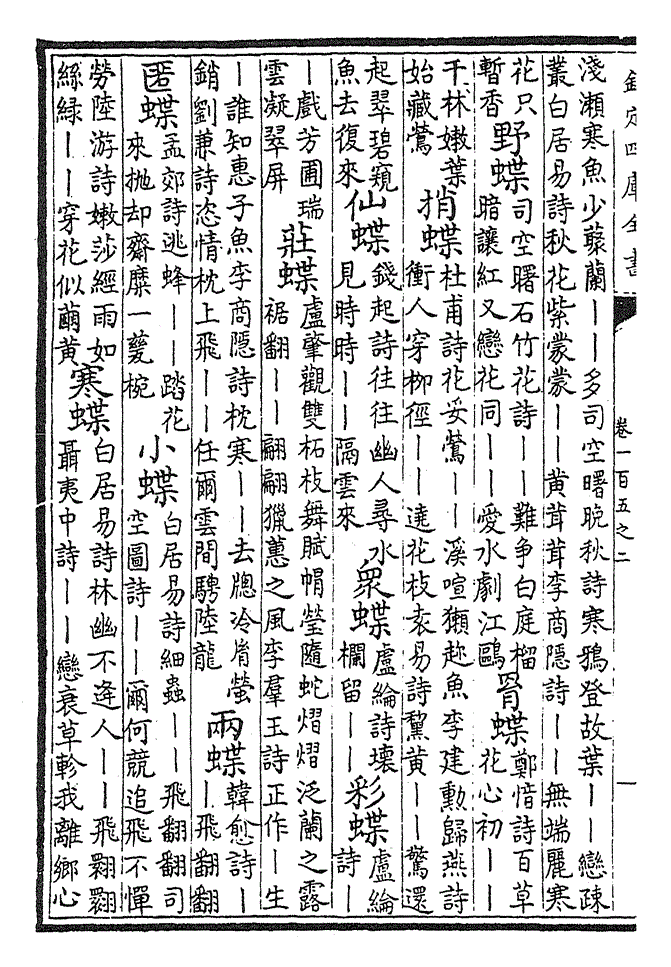 欽定四庫全書
卷一百五之二
一
淺瀨寒魚少藂蘭丨丨多司空曙晚秋詩寒鴉登故葉丨丨戀疎
叢白居易詩秋花紫蒙蒙丨丨黃茸茸李商隱詩丨丨無端麗寒
花只
暫香
野蝶
司空曙石竹花詩丨丨難爭白庭榴
暗讓紅又戀花同丨丨愛水劇江鷗
胥蝶
鄭愔詩百草
花心初丨丨
千林嫩葉
始藏鶯
捎蝶
杜甫詩花妥鶯丨丨溪喧獺趂魚李建勳歸燕詩
衝人穿栁徑丨丨遶花枝袁易詩黧黄丨丨驚還
起翠碧窺
魚去復來
仙蝶
錢起詩往往幽人尋水
見時時丨丨隔雲來
衆蝶
盧綸詩壞
欄留丨丨
彩蝶
盧綸
詩丨
丨戲芳圃瑞
雲凝翠屏
莊蝶
盧肇觀雙柘枝舞賦帽瑩隨蛇熠熠泛蘭之露
裾翻丨丨翩翩獵蕙之風李羣玉詩正作丨生
丨誰知惠子魚李商隱詩枕寒丨丨去牕冷胤螢
銷劉兼詩恣情枕上飛丨丨任爾雲間騁陸龍
兩蝶
韓愈詩丨
丨飛翻翻
匿蝶
孟郊詩逃蜂丨丨踏花
來抛却齋糜一甆椀
小蝶
白居易詩細蟲丨丨飛翻翻司
空圖詩丨丨爾何競追飛不憚
勞陸游詩嫩莎經雨如
絲綠丨丨穿花似繭黄
寒蝶
白居易詩林幽不逢人丨丨飛翾翾
聶夷中詩丨丨戀衰草軫我離鄉心